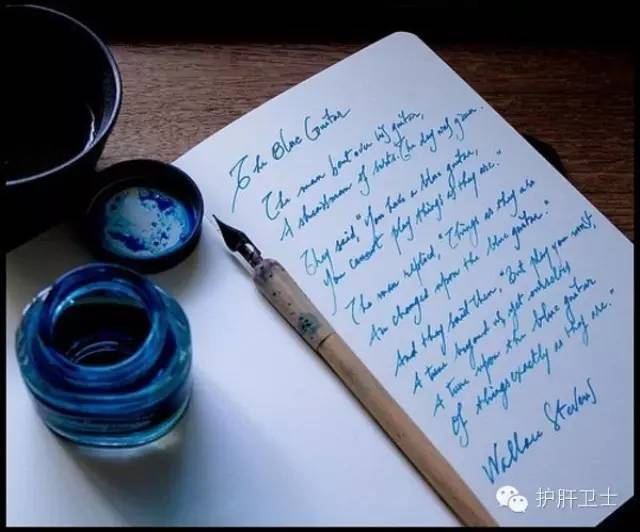 The Blue Guitar
The man bent over his guitar,
A shearsman of sorts. The day was green.
They said, "You have a blue guitar,
You cannot play things as they are."
The man replied, "Things as they are
Are changed upon the blue guitar."
And they said then, "But play you must,
A tune beyond us, yet ourselves,
A tune upon the blue guitar
Of things exactly as they are."
Wallace Stevens
护肝卫士